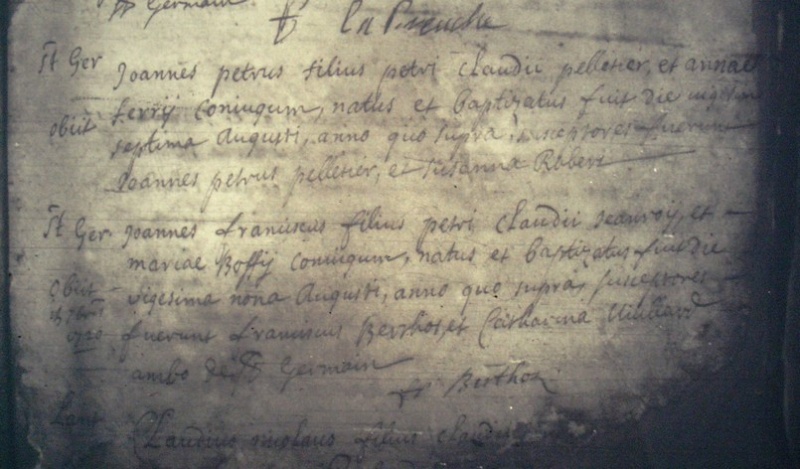 Germain
St Ger Joannes petrus filius petri Claudii pelletier, et annae
obiit ferrÿ coniugum, natus et baptizatus fuit die vigesima
septima Augusti, anno quo supra, susceptores fuerunt
Joannes petrus pelletier, et susanna Robert
St Ger Joannes franciscus filius petri Claudii Jeanroy, et
mariae Boffÿ coniugum, natus et baptizatus fuit die
obiit vigesima nona Augusti, anno quo supra, susceptores
fuerunt franciscus Berthos, et Catharina
ambo de St Germain
Berthos
Claudius nicolaus filius Claudii